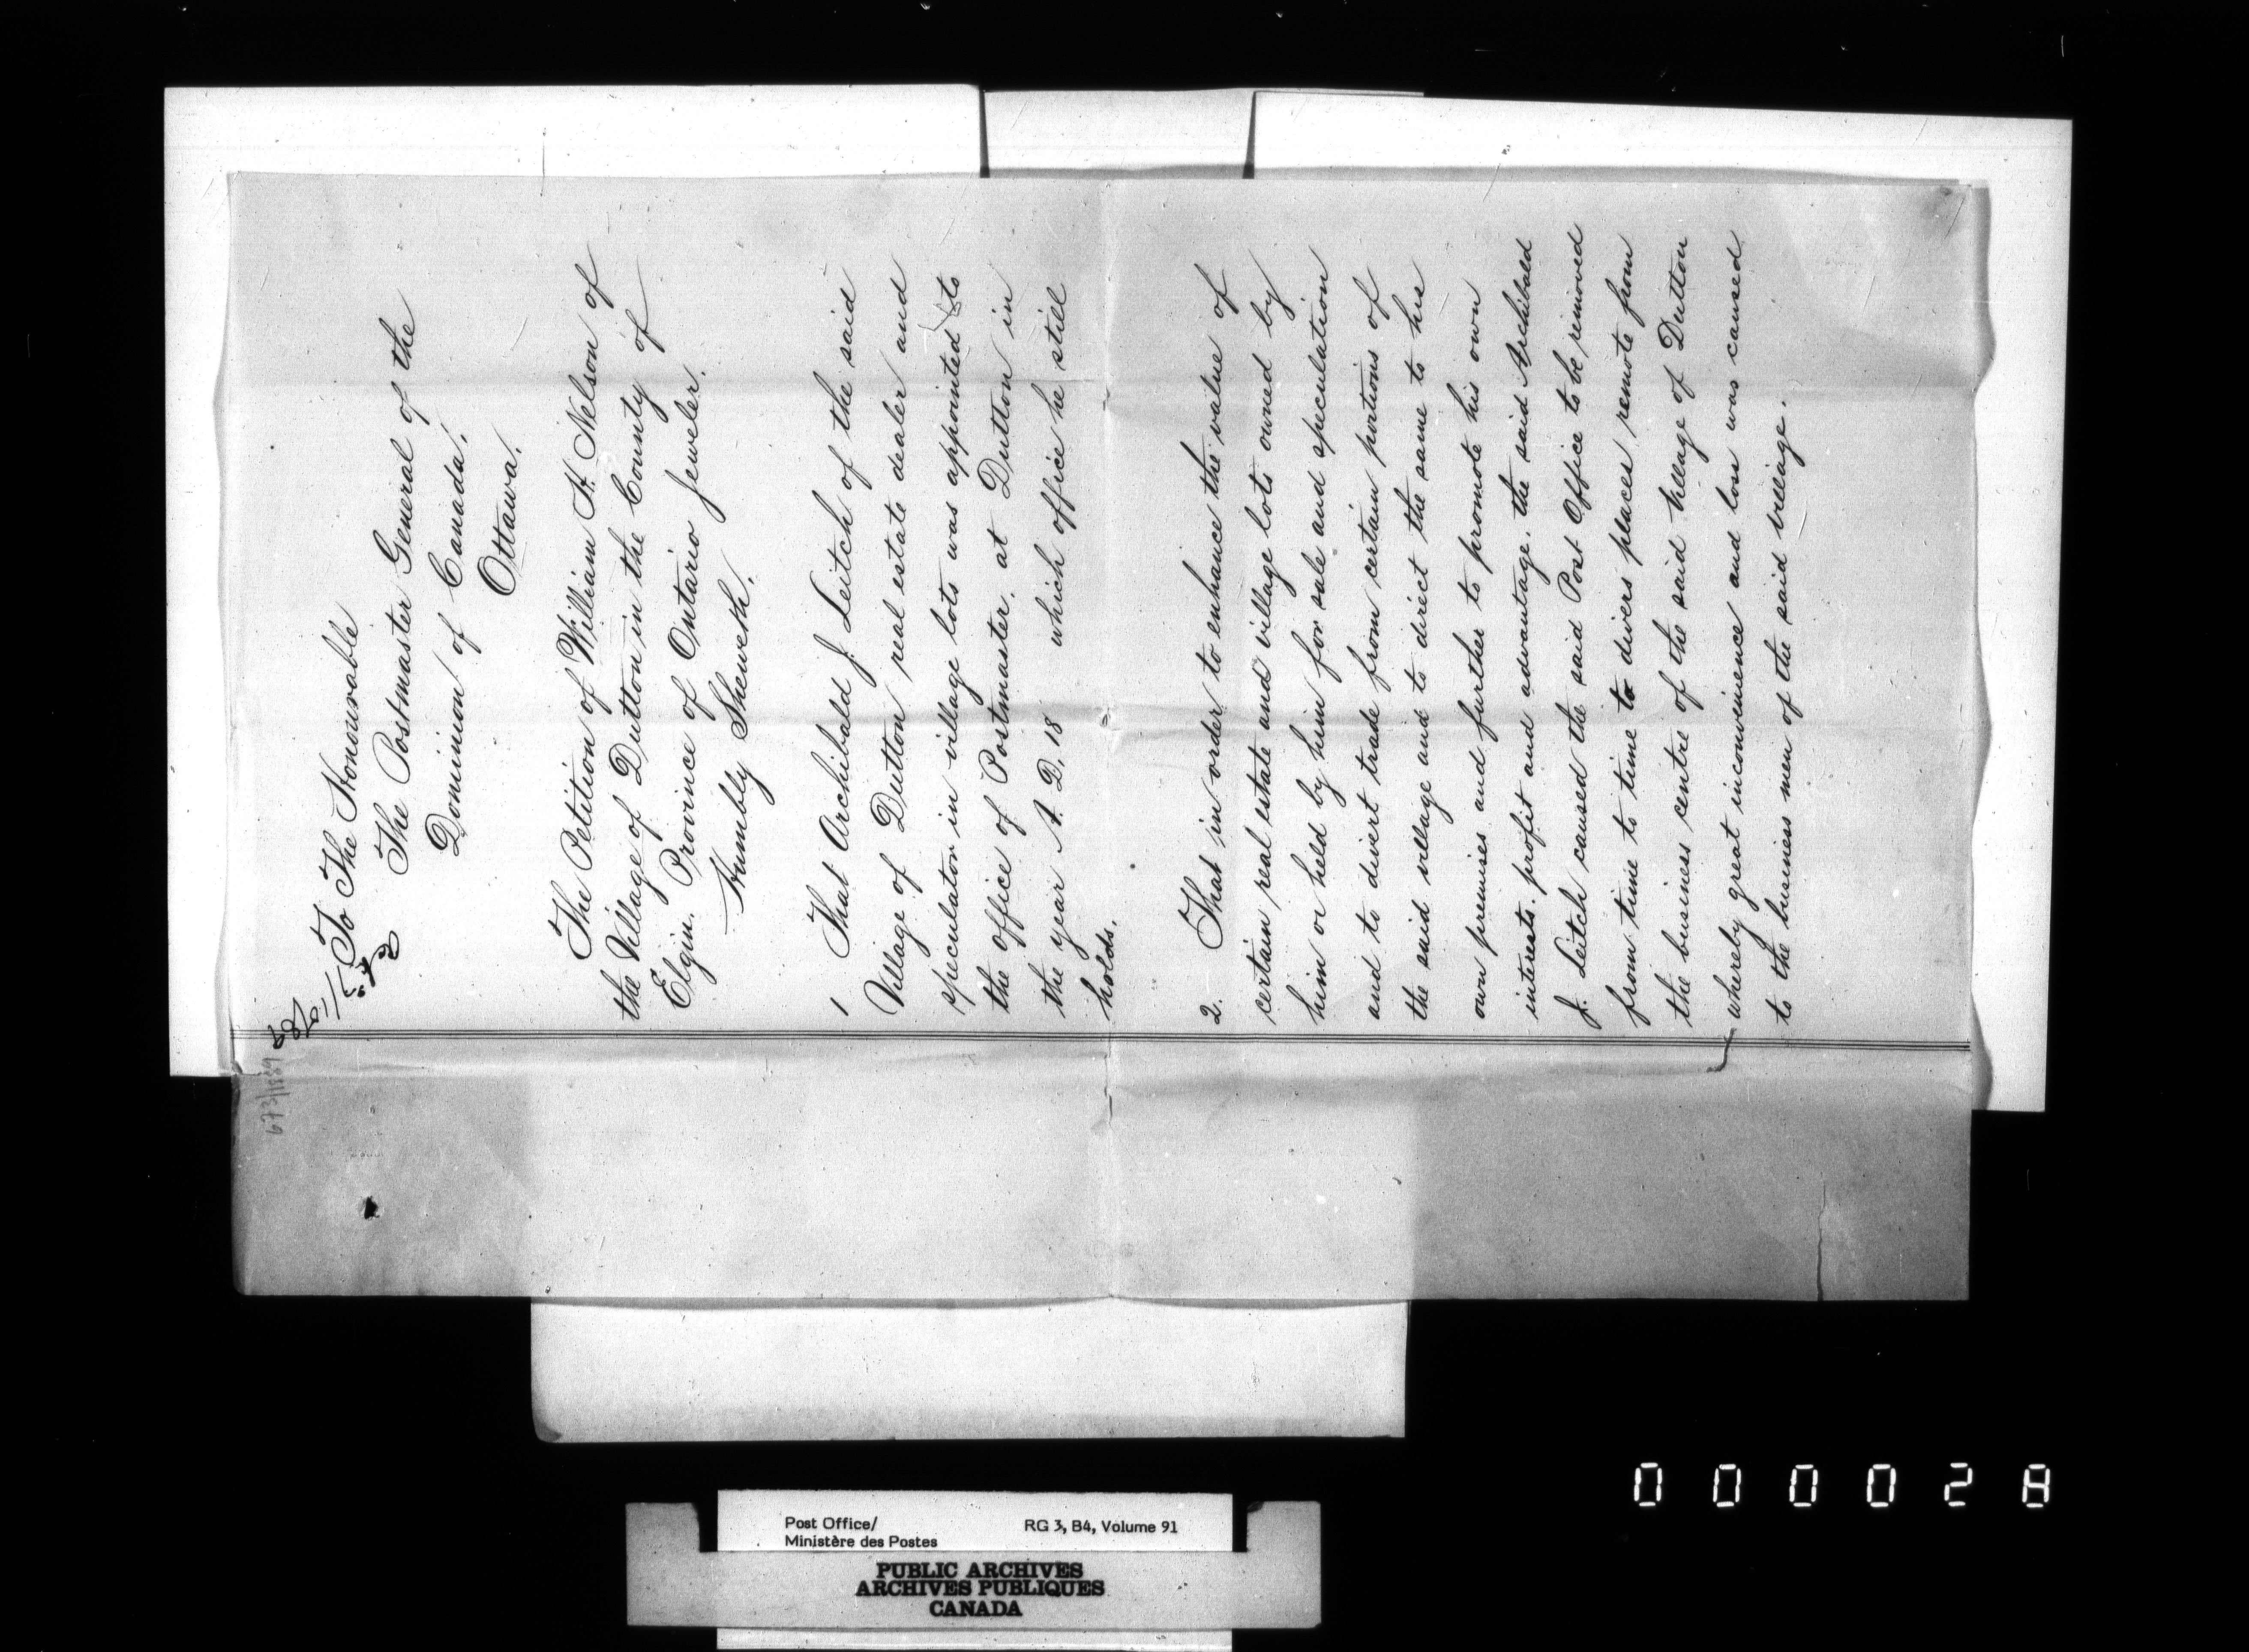 To The Honourable
The Postmaster General of the
Dominion of Canada.
Ottawa.
The Petition of William H. Nelson of
the Village of Dutton in the County of
Elgin. Province of Ontario Jeweler.
Humbly Sheweth.
1 That Archibald J. Leitch of the said
Village of Dutton real estate dealer and
speculator in village lots was appointed to
the office of Postmaster, at Dutton in
the year A. D. 18 which office he still
holds.
2. That in order to enhance the value of
certain real estate and village lots owned by
him or held by him for sale and speculation
and to divert trade from certain portions of
the said village and to direct the same to his
own premises and further to promote his own
interests, profit and advantage, the said Archibald
J. Leitch caused the said Post Office to be removed
from time to time to divers places remote from
the business centre of the said Village of Dutton
whereby great inconvenience and loss was caused
to the business men of the said village.
000028
Post Office/ RG 3, B4, Volume 91
Ministère des Postes
PUBLIC ARCHIVES
ARCHIVES PUBLIQUES
CANADA